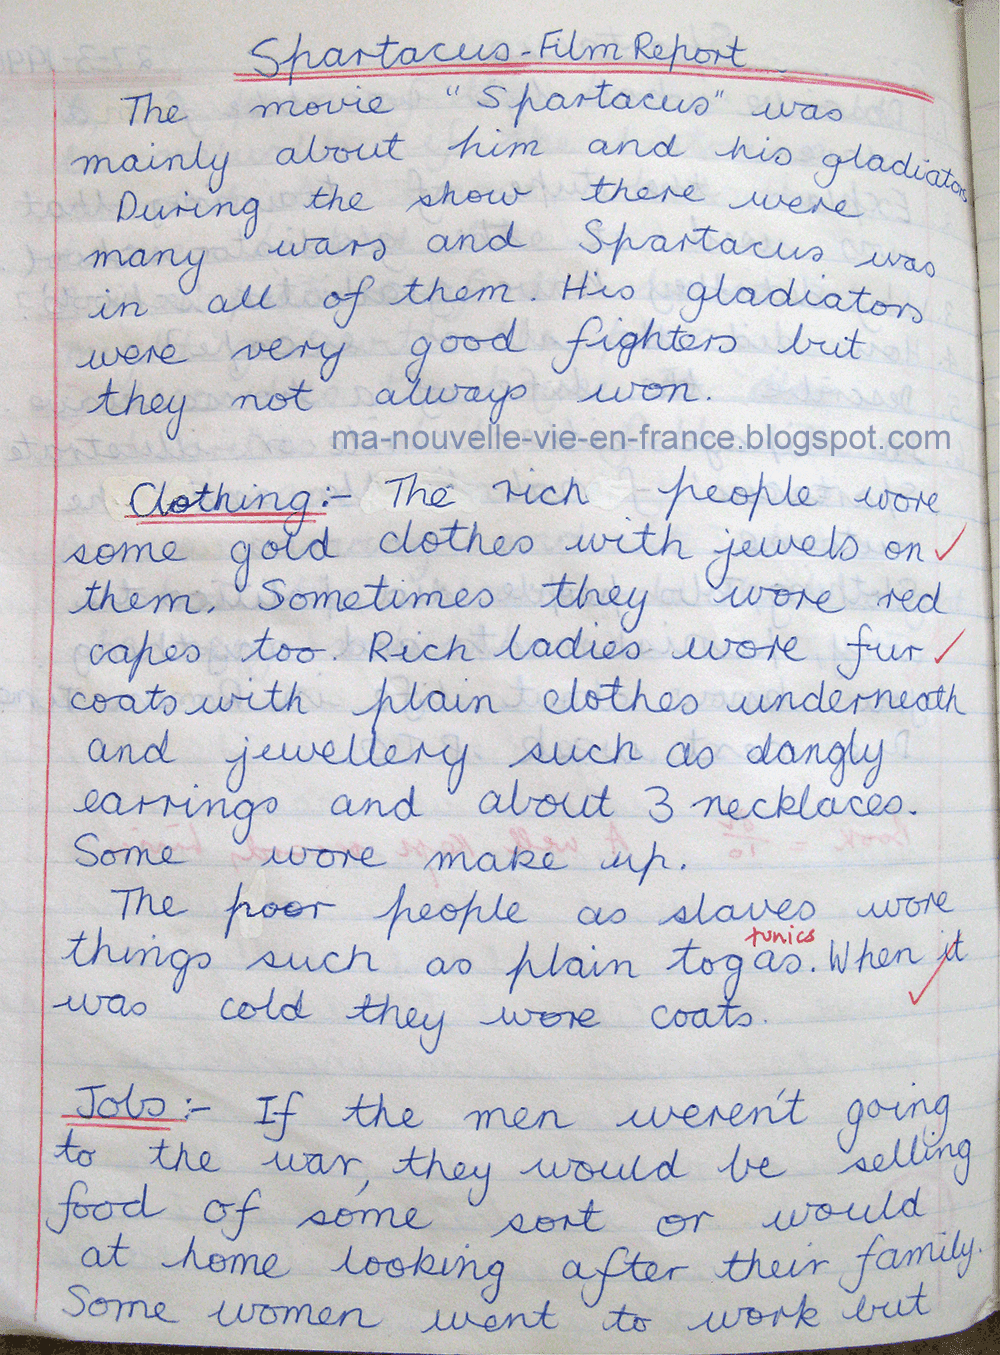 Spartacus - Film Report
The movie "Spartacus" was
mainly about him and his gladiators
During the show there were
many wars and Spartacus was
in all of them. His gladiators
were very good fighters but
they not always won.
ma-nouvelle-vie-en-france.blogspot.com
Clothing:- The rich people wore
some gold clothes with jewels on
them. Sometimes they wore red
capes too. Rich ladies wore fur
coats with plain clothes underneath
and jewellery such as dangly
earrings and about 3 necklaces.
Some wore make up.
The poor people as slaves wore
tunics
things such as plain togas. When it
was cold they wore coats.
Jobs:- If the men weren't going
to the war, they would be selling
food of some sort or would
at home looking after their family.
Some women went to work but